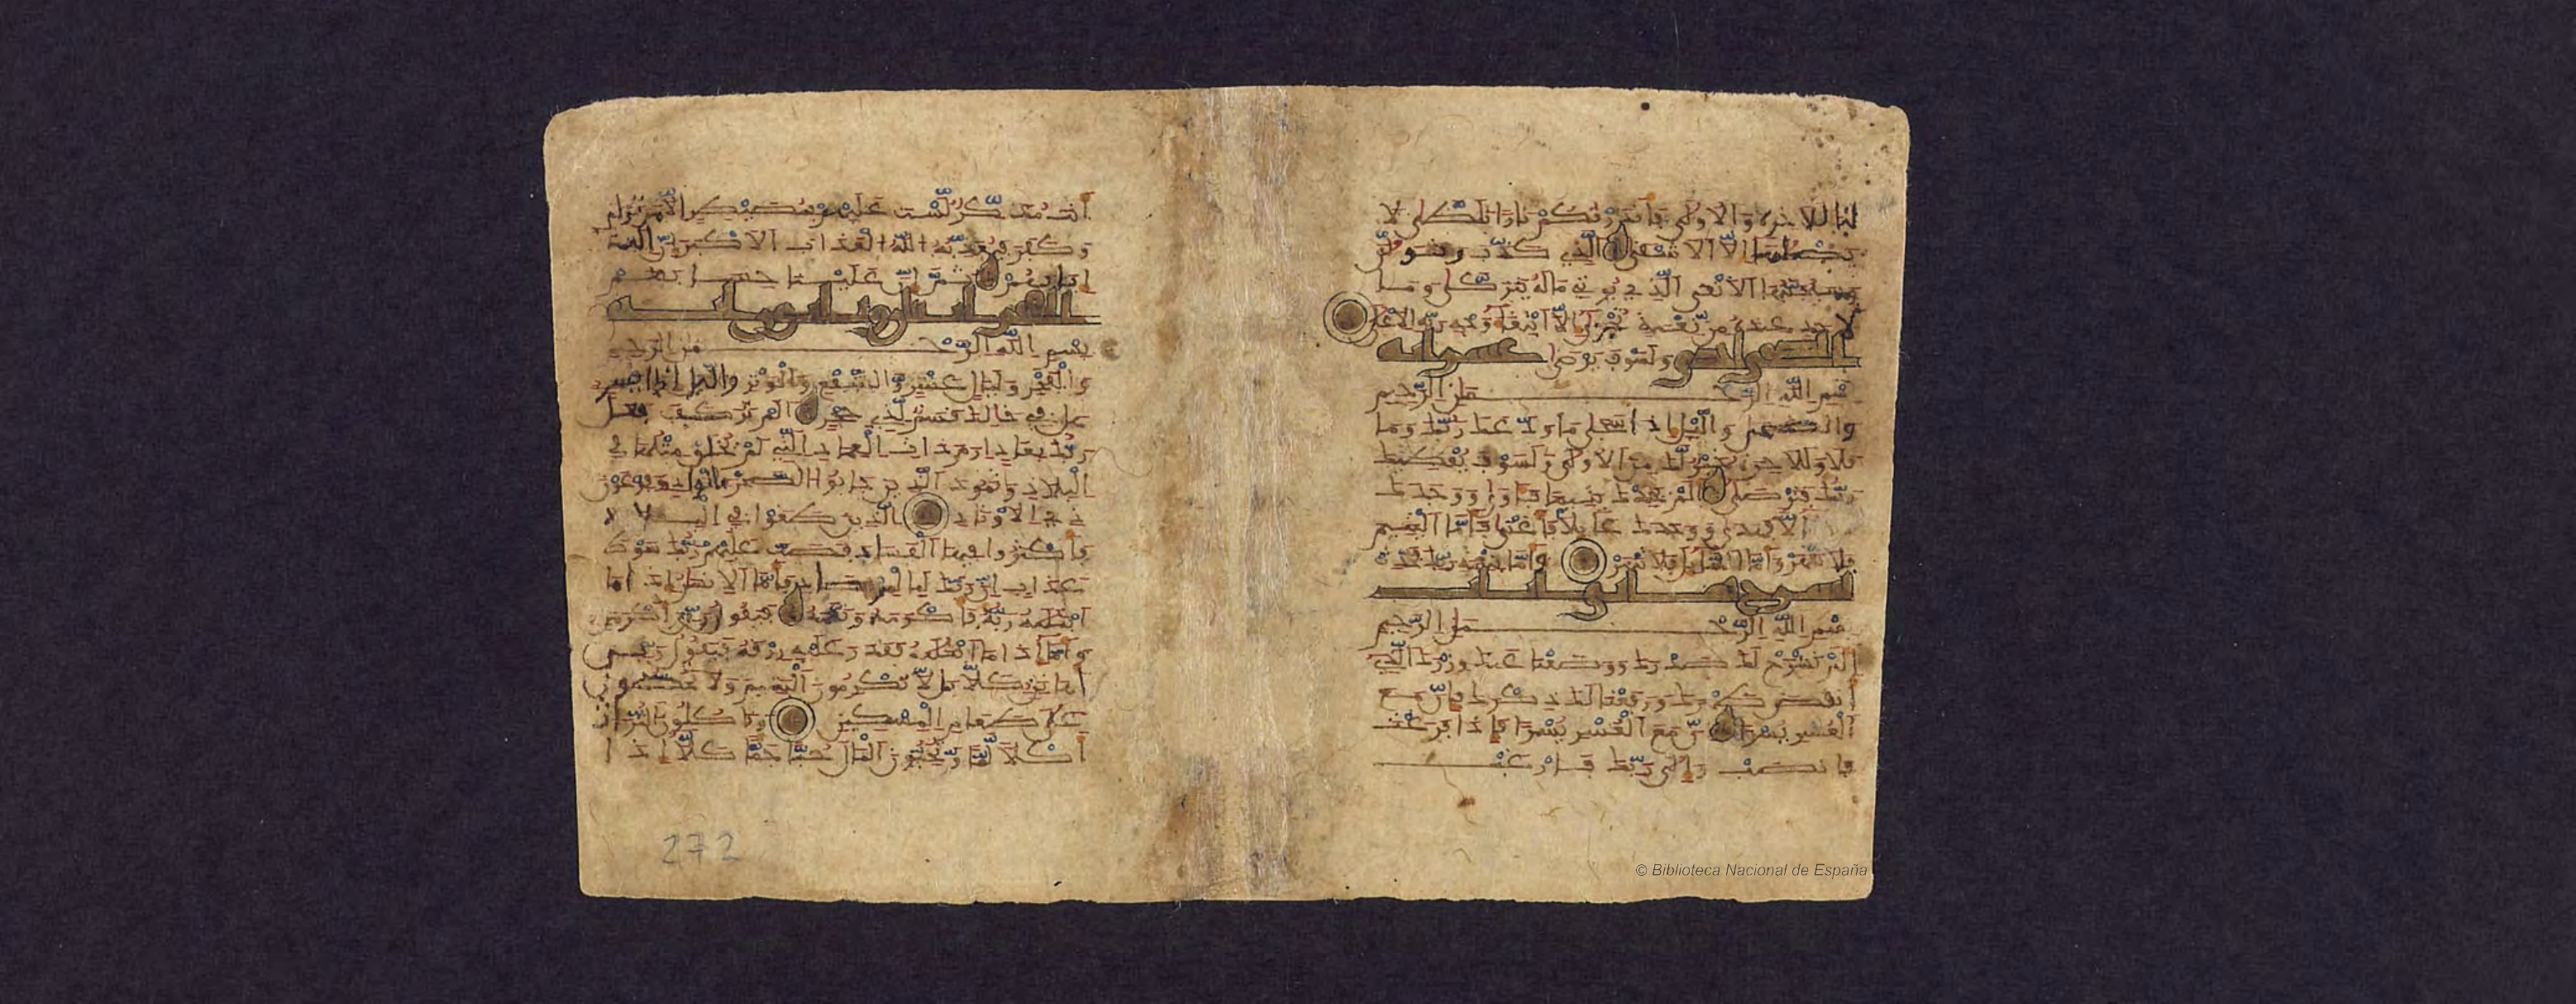 لنا للاخرة والاولى فَأنذَرْتُكُمْ نَارًا تَلَظَّى لا
يصلىها إلا الاشقى الذي كذّب وتولّى
وسيجنّبها الاتقى الذي يوتي ماله يتزكّى وما
لاحد عنده من نّعمة تُجْزَى إلّا ابتغاء وجه ربّه الاعلى
الضحى ولسوف يرضى عشر اية
بسم الله الرّحمن الرّحيم
والضحى والّيل إذا سجى ما ودّعك ربّك وما
قلى وللاخرة خير لّك من الاولى ولسوف يعطيك
ربّك فترضى ألم يجدك يتيما فاوى ووجدك
ضالا فهدى ووجدك عايلا فأغنى فأمّا اليتيم
فلا تقهر وأمّا السّايل فلا تنهر وأمّا بنعمة ربّك فحدّث
نشرح ثماني ايات
بسم الله الرّحمن الرّحيم
ألم نشرح لك صدرك ووضعنا عنك وزرك الّذي
أنقض ظهرك ورفعنا لك ذكرك فإنّ مع
العسر يسرا إنّ مع العسر يسرا فإذا فرغت
فانصب وإلى ربّك فارغب
أنت مذكّر لّست عليهم بمصيطر الّا من تولّى
وكفر فيعذّبه الله العذاب الاكبر إنّ إلينا
إيابهم ثمّ إنّ علينا حسابهم
الفجر اية
بسم الله الرّحمن الرّحيم
والفجر وليال عشر والشّفع والوتر والّيل إذا يسر
هل في ذالك قسم لّذي حجر ألم تر كيف فعل
ربّك بعاد إرم ذات العماد الّتي لم يخلق مثلها في
البلاد وثمود الّذين جابوا الصّخر بالواد وفرعون
ذي الاوتاد الّذين طغوا في البلاد
فأكثروا فيها الفساد فصبّ عليهم ربّك سوط
عذاب إنّ ربّك لبالمرصاد فأمّا الانسان إذا ما
ابتليه ربّه فأكرمه ونعّمه فيقول ربّي أكرمن
وأمّا إذا ما ابتليه فقدر عليه رزقه فيقول ربّي
أهانن كلّا بل لّا تكرمون اليتيم ولا تحضّون
على طعام المسكين وتاكلون التّراث
أكلا لّمّا وتحبّون المال حبّا جمّا كلّا إذا
272
© Biblioteca Nacional de España